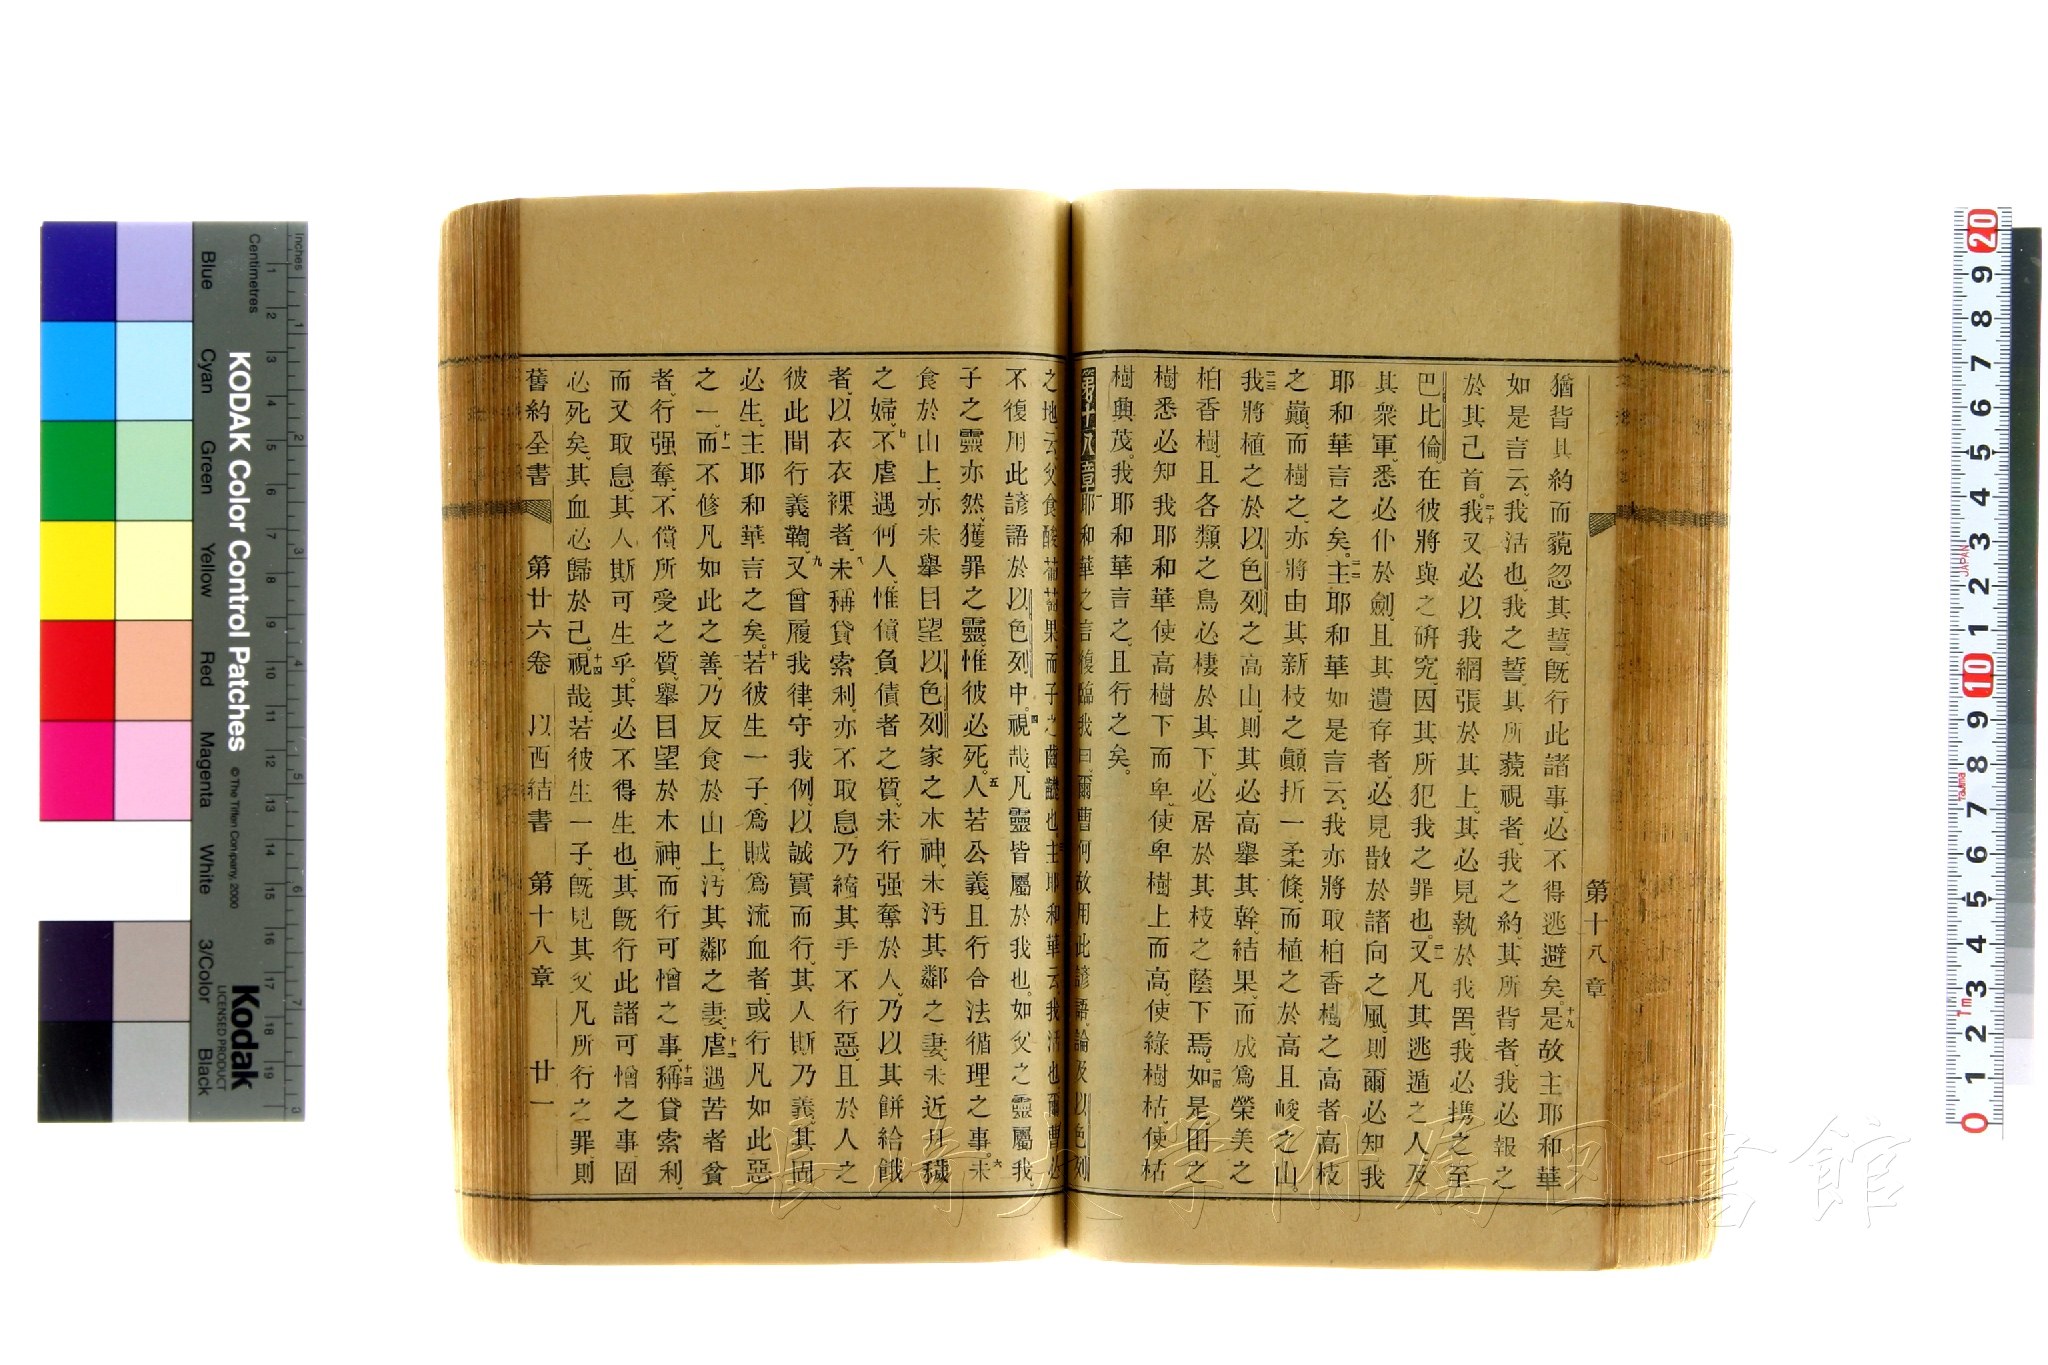 第十八章
猶背其約而藐忽其誓、既行此諸事、必不得逃避矣。十九是故主耶和華
如是言云、我活也、我之誓、其所藐視者、我之約、其所背者、我必報之
於其己首。二十我又必以我網張於其上、其必見執於我罟、我必携之至
巴比倫、在彼將與之研究、因其所犯我之罪也。二一又凡其逃遁之人及
其衆軍、悉必仆於劍、且其遺存者、必見散於諸向之風、則爾必知我
耶和華言之矣。二二主耶和華如是言云、我亦將取柏香樹之高者高枝
之巔、而樹之、亦將由其新枝之顛折一柔條、而植之於高且峻之山。
二三我將植之於以色列之高山、則其必高舉其幹、結果、而成爲榮美之
柏香樹、且各類之鳥必棲於其下、必居於其枝之蔭下焉。二四如是田之
樹悉必知我耶和華使高樹下而卑、使卑樹上而高、使綠樹枯、使枯
樹興茂。我耶和華言之、且行之矣。
第十八章 一耶和華之言復臨我曰、二爾曹何故用此諺語、論及以色列
之地云、父食酸葡萄果、而子之齒齼也。三主耶和華云、我活也、爾曹必
不復用此諺語於以色列中。四視哉、凡靈皆屬於我也。如父之靈屬我、
子之靈亦然、獲罪之靈、惟彼必死。五人若公義、且行合法循理之事。六未
食於山上、亦未舉目望以色列家之木神、未汚其鄰之妻、未近月穢
之婦、七不虐遇何人、惟償負債者之質、未行强奪於人、乃以其餅給餓
者、以衣衣裸者、八未稱貸索利、亦不取息、乃縮其手不行惡、且於人之
彼此間行義鞫、九又曾履我律、守我例、以誠實而行、其人斯乃義、其固
必生、主耶和華言之矣。十若彼生一子、爲賊爲流血者或行凡如此惡
之一、十一而不修凡如此之善、乃反食於山上、汚其鄰之妻、十二虐遇苦者貧
者、行强奪、不償所受之質、舉目望於木神、而行可憎之事、十三稱貸索利、
而又取息、其人斯可生乎。其必不得生也、其既行此諸可憎之事、固
必死矣、其血必歸於己。十四視哉、若彼生一子、既見其父凡所行之罪、則
舊約全書 第廿六卷 以西結書 第十八章 廿一
長崎大学附属図書館
KODAK Color Control Patches
© The Tiffen Company, 2000
Kodak
LICENSED PRODUCT
Blue Cyan Green Yellow Red Magenta White 3/Color Black
Inches 1 2 3 4 5 6 7 8
Centimetres 1 2 3 4 5 6 7 8 9 10 11 12 13 14 15 16 17 18 19
20 9 8 7 6 5 4 3 2 1 10 9 8 7 6 5 4 3 2 1 0
JAPAN
Tajima
7m